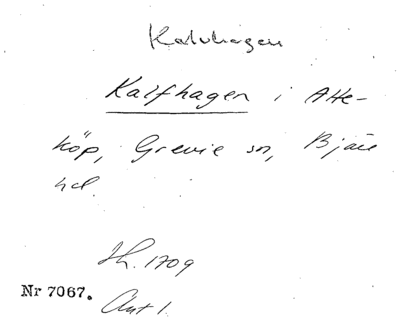 Kalvhagen
Kalfhagen i Atte-
köp, Grevie sn, Bjäre
hd.
Jh. 1709
Nr 7067.
Ant 1.